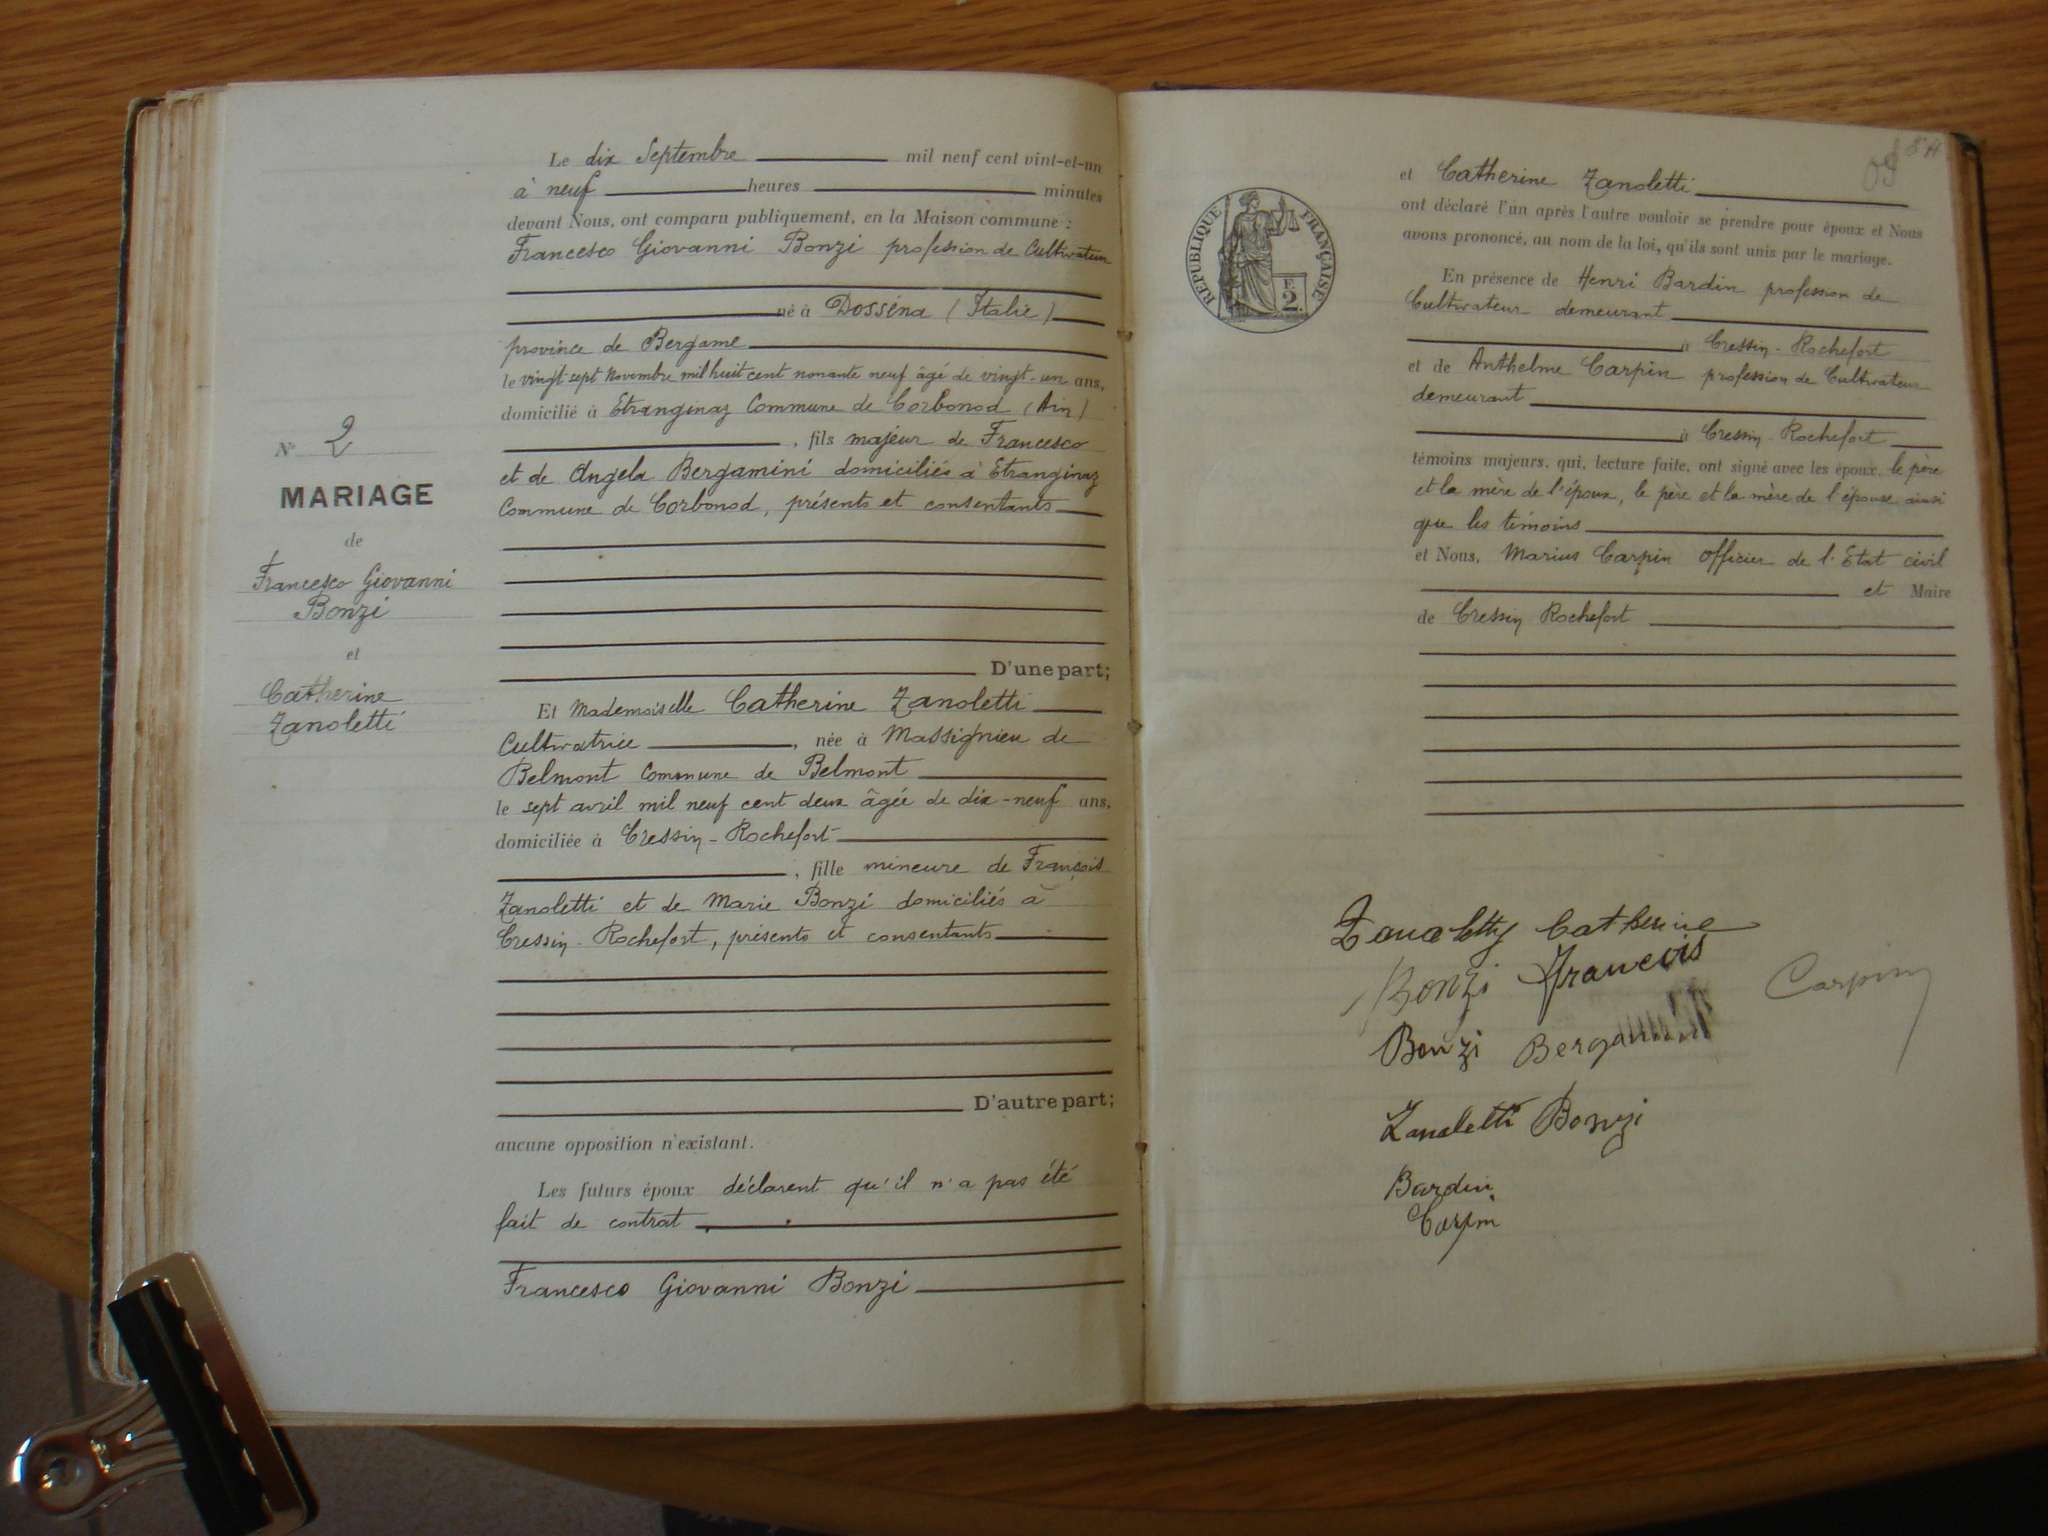 Le dix Septembre mil neuf cent vint-et-un
à neuf heures minutes
devant Nous, ont comparu publiquement, en la Maison commune :
Francesco Giovanni Bonzi profession de Cultivateur
né à Dosséna (Italie)
province de Bergame
le vingt sept Novembre mil huit cent nonante neuf âgé de vingt-un ans,
domicilié à Etranginaz Commune de Corbonod (Ain)
, fils majeur de Francesco
et de Angela Bergamini domiciliés à Etranginaz
Commune de Corbonod, présents et consentants
D'une part;
Nº 2
MARIAGE
de
Francesco Giovanni
Bonzi
et
Catherine
Zanoletti
Et Mademoiselle Catherine Zanoletti
Cultivatrice , née à Massignieu de
Belmont Commune de Belmont
le sept avril mil neuf cent deux âgée de dix-neuf ans,
domiciliée à Cressin-Rochefort
, fille mineure de François
Zanoletti et de Marie Bonzi domiciliés à
Cressin-Rochefort, présents et consentants
D'autre part;
aucune opposition n'existant.
Les futurs époux déclarent qu'il n'a pas été
fait de contrat
Francesco Giovanni Bonzi
RÉPUBLIQUE FRANÇAISE
2
et Catherine Zanoletti
ont déclaré l'un après l'autre vouloir se prendre pour époux et Nous
avons prononcé, au nom de la loi, qu'ils sont unis par le mariage.
En présence de Henri Bardin profession de
Cultivateur demeurant
à Cressin-Rochefort
et de Anthelme Carpin profession de Cultivateur
demeurant
à Cressin-Rochefort
témoins majeurs, qui, lecture faite, ont signé avec les époux, le père
et la mère de l'époux, le père et la mère de l'épouse ainsi
que les témoins
et Nous, Marius Carpin Officier de l'Etat civil
et Maire
de Cressin Rochefort
Zanoletty Catherine
Bonzi Francois
Carpin
Bonzi
Zanoletti Bonzi
Bardin
Carpin